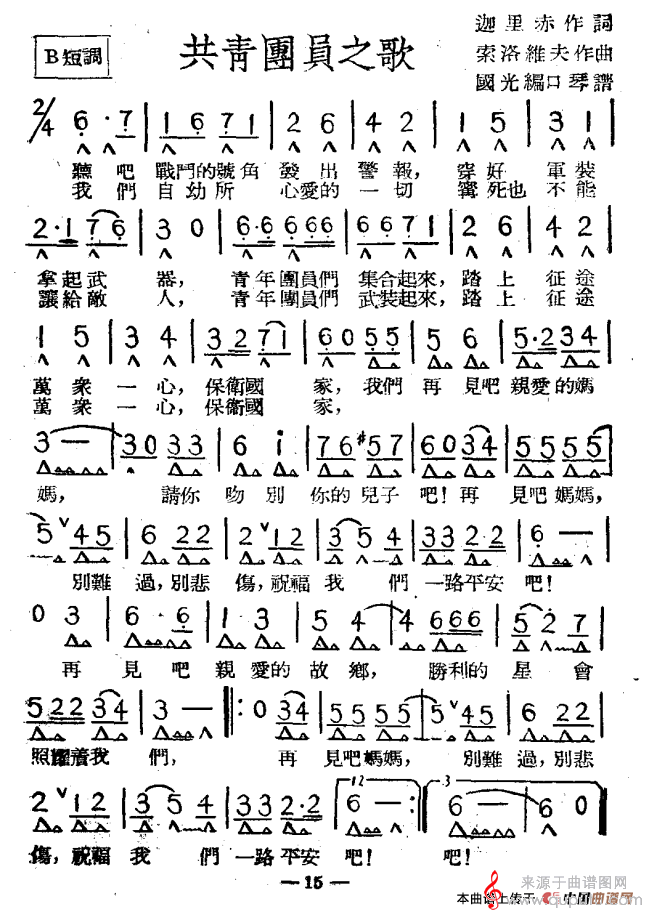 B短調
共青團員之歌
迦里赤作詞
索洛維夫作曲
國光編口琴譜
2/4 6·7 | 1 6 7 1 | 2 6 | 4 2 | 1 5 | 3 1 |
聽吧 戰鬥的號角 發出 警報, 穿好 軍裝
我們 自幼所 心愛的 一切 寗死也 不能
2·1 7 6 | 3 0 | 6·6 6 6 6 | 6 6 7 1 | 2 6 | 4 2 |
拿起武 器, 青年團員們 集合起來, 踏上 征途
讓給敵 人, 青年團員們 武裝起來, 踏上 征途
1 5 | 3 4 | 3 2 7 1 | 6 0 5 5 | 5 6 | 5·2 3 4 |
萬衆 一心, 保衛國 家, 我們 再見吧 親愛的媽
萬衆 一心, 保衛國 家,
3 — | 3 0 3 3 | 6 i | 7 6 #5 7 | 6 0 3 4 | 5 5 5 5 |
媽, 請你 吻別 你的兒子吧! 再見吧媽媽,
5 ∨ 4 5 | 6 2 2 | 2 ∨ 1 2 | 3 5 4 | 3 3 2·2 | 6 — |
別難過, 別悲傷, 祝福我們 一路平安吧!
0 3 | 6·6 | 1 3 | 5 4 | 4 6 6 6 | 5 2 7 |
再見吧 親愛的故鄉, 勝利的星會
5 2 2 3 4 | 3 — :| 0 3 4 | 5 5 5 5 | 5 ∨ 4 5 | 6 2 2 |
照耀着我們, 再見吧媽媽, 別難過, 別悲
2 ∨ 1 2 | 3 5 4 | 3 3 2·2 | 12 6 — :| 3 6 — | 6 0 |
傷, 祝福我們 一路平安吧! 吧!
— 15 —
来源于曲谱图网
本曲谱上传于
中国曲谱网